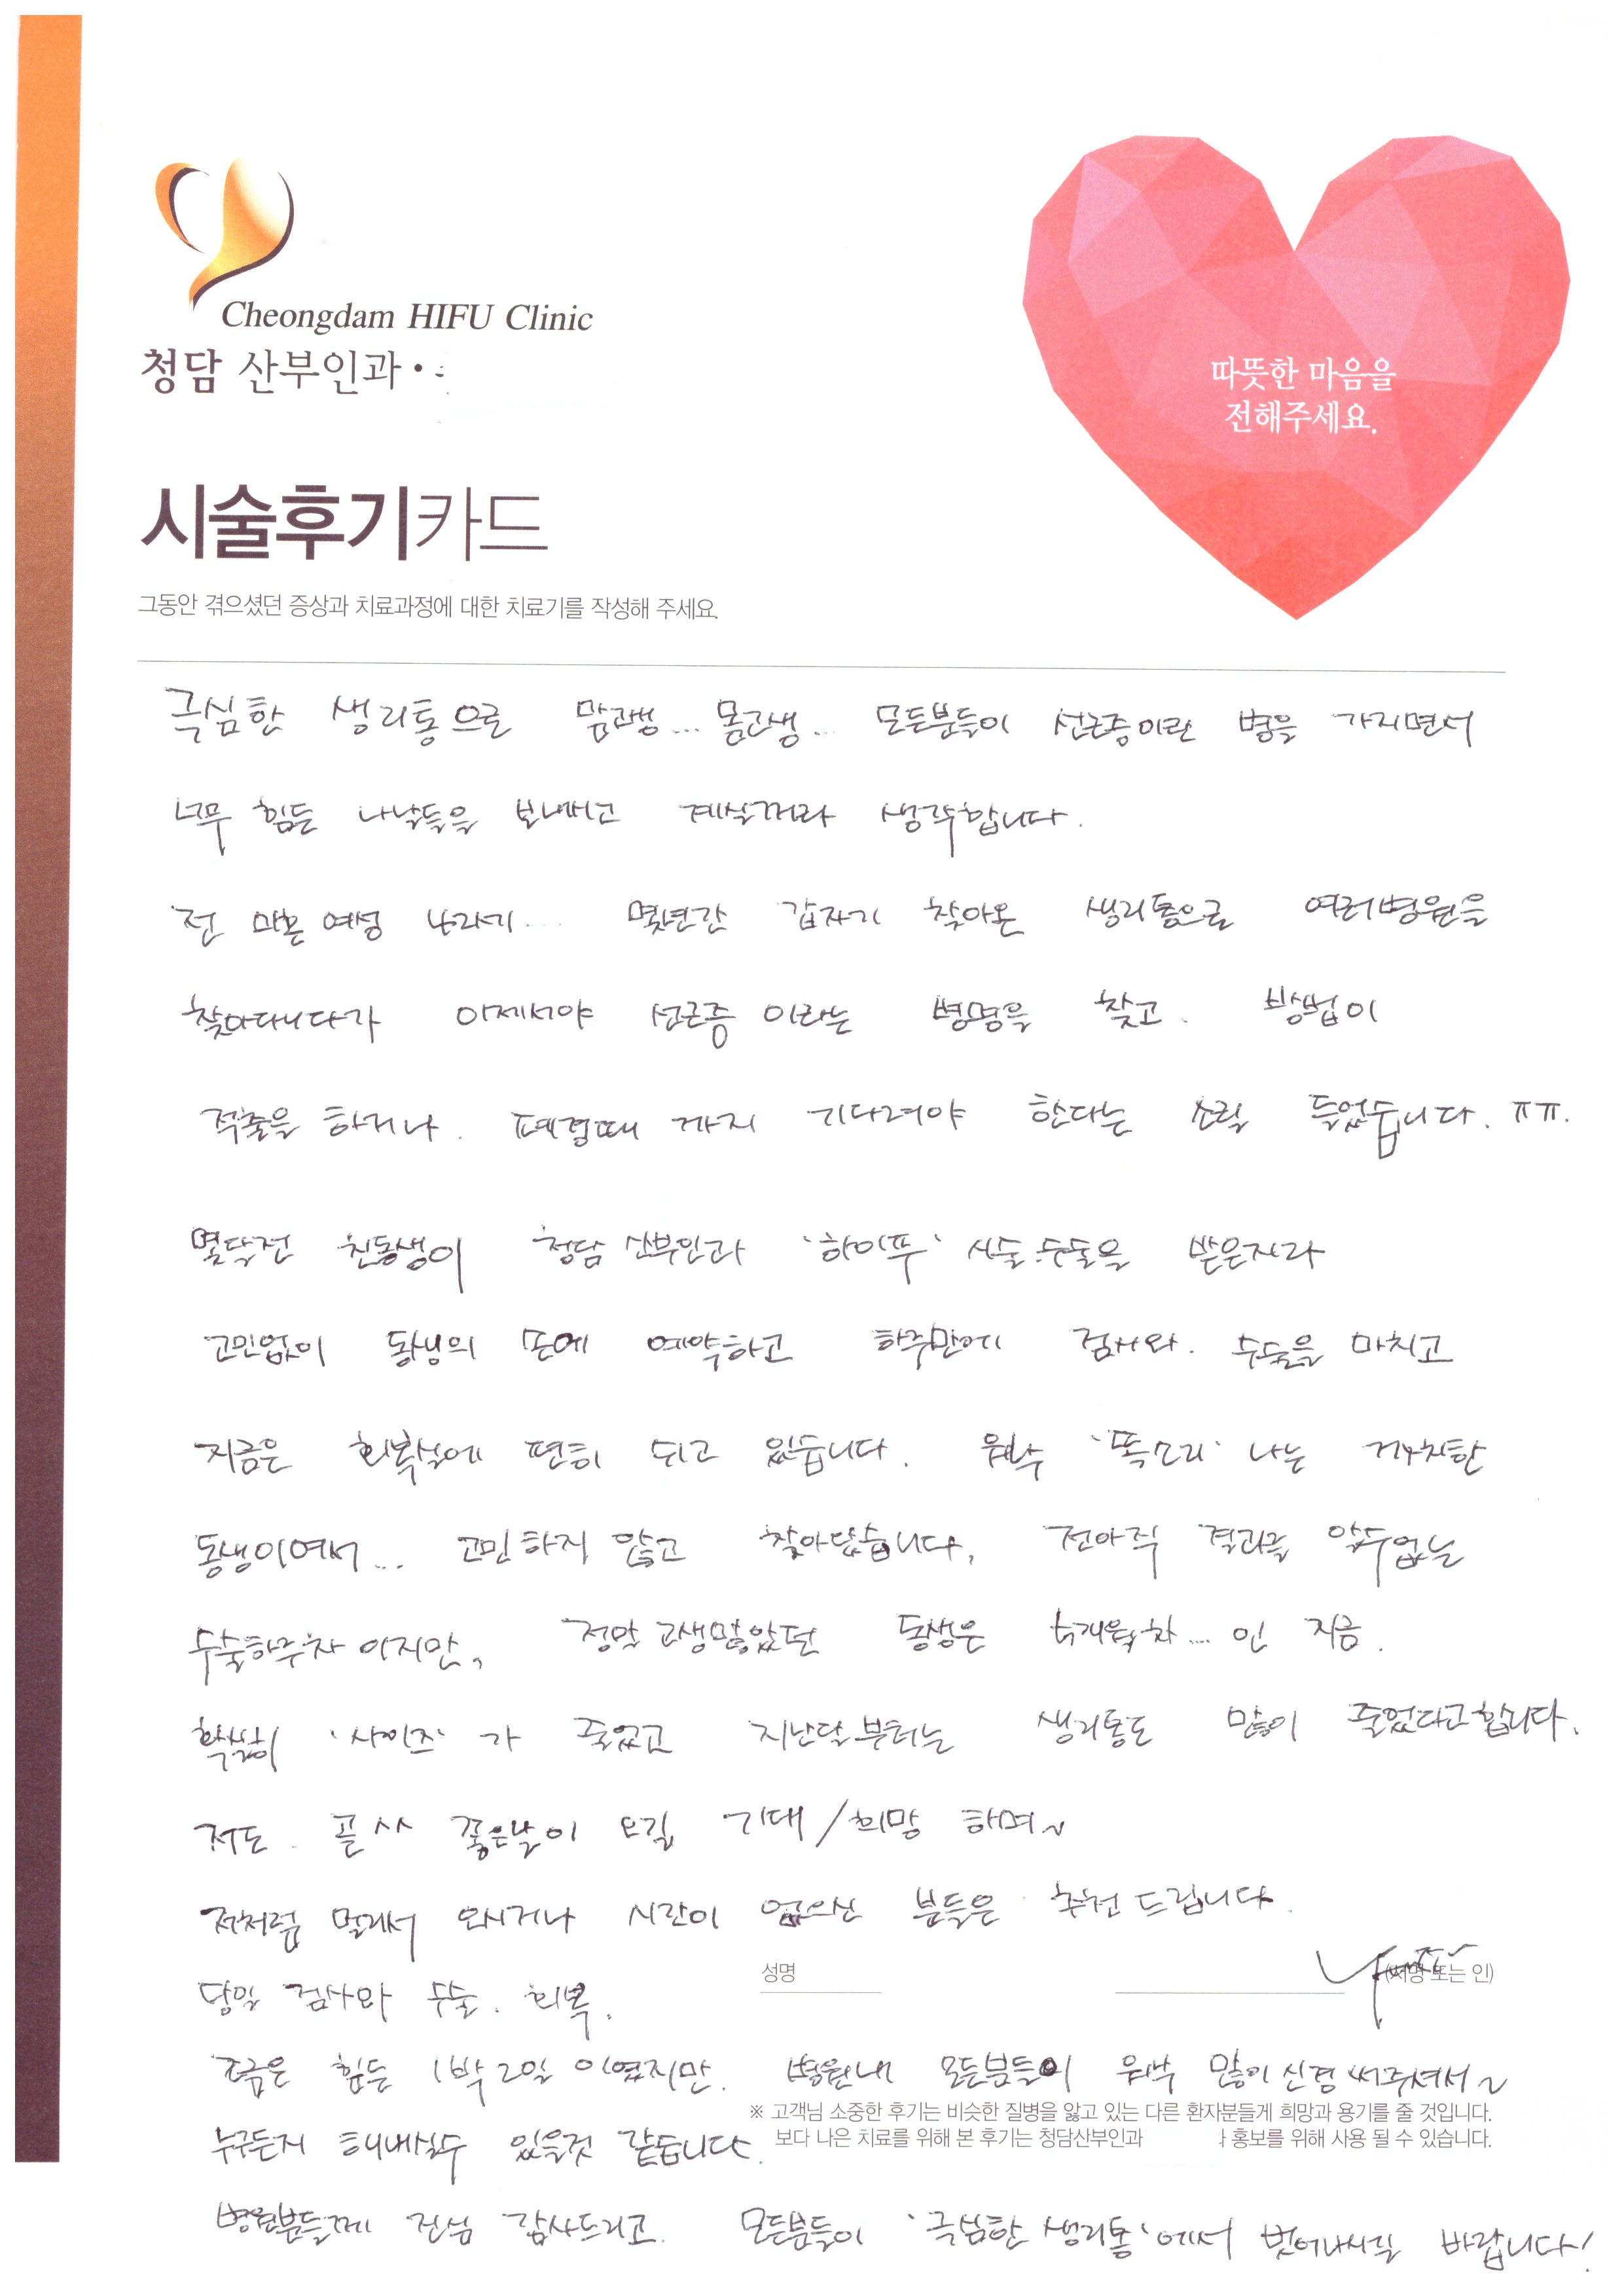 Cheongdam HIFU Clinic
청담 산부인과
따뜻한 마음을
전해주세요.
시술후기카드
그동안 겪으셨던 증상과 치료과정에 대한 치료기를 작성해 주세요.
극심한 생리통으로 맘고생... 몸고생... 모든분들이 선근증이란 병을 가지면서
너무 힘든 나날들을 보내시고 계실꺼라 생각합니다.
전 마흔 여성 나라씨.... 몇년간 갑자기 찾아온 생리통으로 여러병원을
찾아다니다가 이제서야 선근증 이라는 병명을 찾고. 방법이
적출을 하거나. 폐경때 까지 기다려야 한다는 소릴 들었습니다. ㅠㅠ.
몇달전 친동생이 청담 산부인과 '하이푸' 시술.수술을 받은지라
고민없이 동생의 손에 예약하고 하루만에 검사와. 수술을 마치고
지금은 회복실에 편히 쉬고 있습니다. 워낙 '똑소리' 나는 동생이여서... 고민하지 않고 찾아왔습니다. 전아직 결과를 알수없는
수술하루차 이지만, 정말 고생많았던 동생은 인 지금.
확실히 '사이즈' 가 줄었고 지난달부터는 생리통도 많이 줄었다고합니다.
저도. 곧 좋은날이 오길 기대/희망 하며~
저처럼 멀리서 오시거나 시간이 없으신 분들은 추천 드립니다.
성명 (서명 또는 인)
당일 검사와 수술. 회복.
조금은 힘든 1박2일 이였지만. 병원내 모든분들이 워낙 많이 신경 써주셔서~
※ 고객님 소중한 후기는 비슷한 질병을 앓고 있는 다른 환자분들게 희망과 용기를 줄 것입니다.
누구든지 해내실수 있을것 같습니다.
보다 나은 치료를 위해 본 후기는 청담산부인과 홍보를 위해 사용 될 수 있습니다.
병원분들께 진심 감사드리고. 모든분들이 '극심한 생리통'에서 벗어나시길 바랍니다!